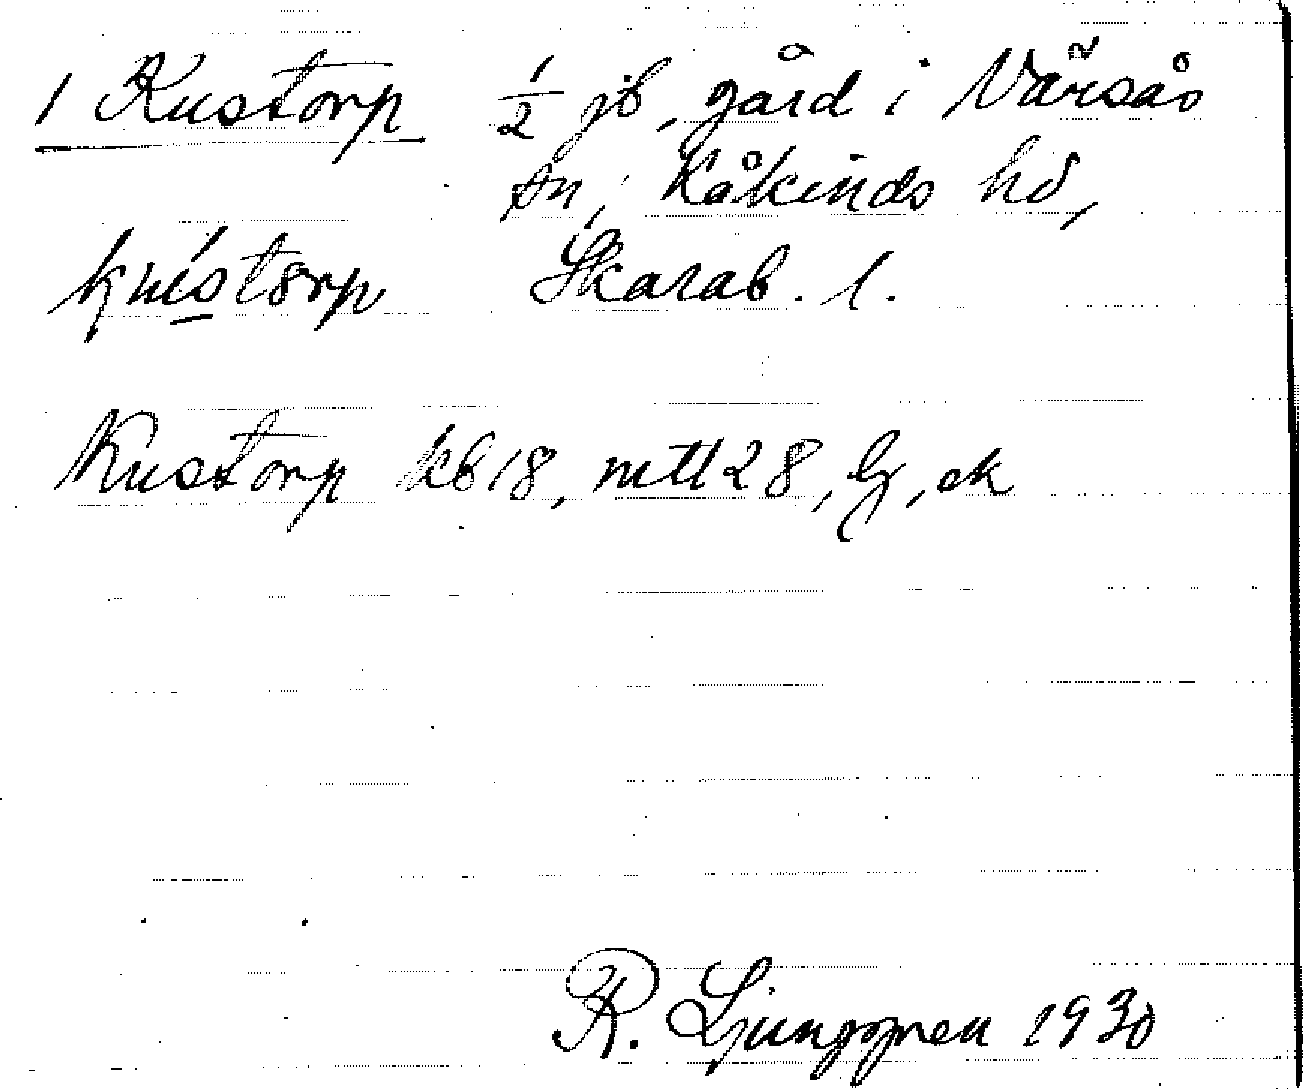 1 Kustorp ½ jb, gård i Värsås
sn, Kåkinds hd,
Skarab. l.
Kustorp kb 18, mtl 28, Lg, ek
R. Ljunggren 1930